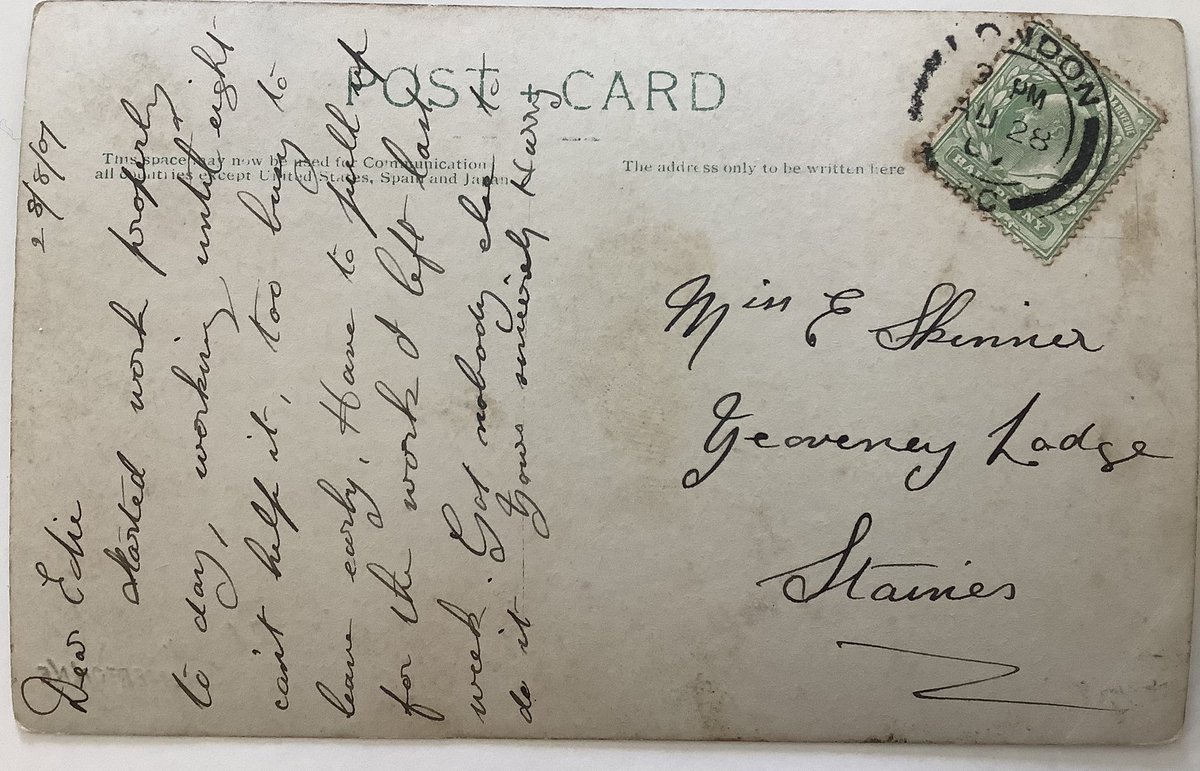 POST CARD
This space may now be used for Communication
all countries except United States, Spain and Japan
The address only to be written here
LONDON
3 PM
28
HALFPENNY
28/8/07
Dear Edie
started work properly
to day, working until eight
can't help it, too busy to
leave early, Have to pull up
for the work I left last
week. Got nobody else to
do it Yours sincerely Harry
Miss E Skinner
Yeoveney Lodge
Staines